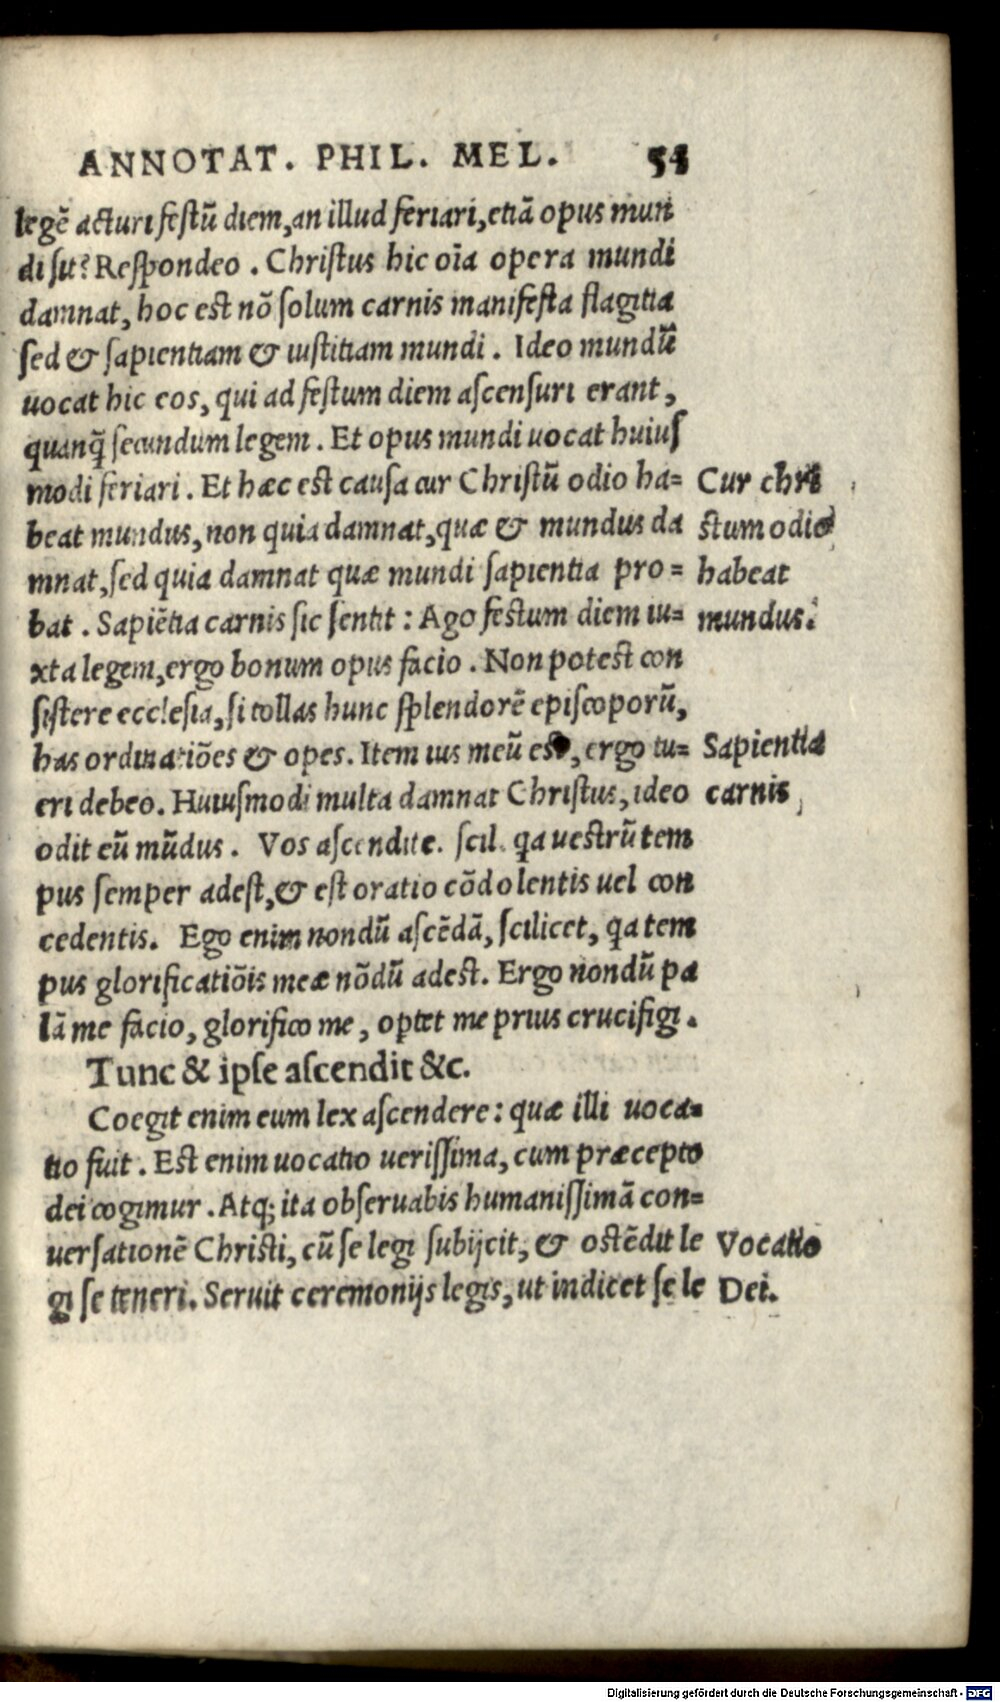 ANNOTAT. PHIL. MEL. 54
legē acturi festū diem, an illud feriari, etiā opus mun
di sit? Respondeo. Christus hic oīa opera mundi
damnat, hoc est nō solum carnis manifesta flagitia
sed & sapientiam & iustitiam mundi. Ideo mundū
uocat hic eos, qui ad festum diem ascensuri erant,
quanq̄ secundum legem. Et opus mundi uocat huius
modi feriari. Et hæc est causa cur Christū odio ha=
beat mundus, non quia damnat, quæ & mundus da
mnat, sed quia damnat quæ mundi sapientia pro=
bat. Sapiētia carnis sic sentit: Ago festum diem iu=
xta legem, ergo bonum opus facio. Non potest con
sistere ecclesia, si tollas hunc splendorē episcoporū,
has ordinatiōes & opes. Item ius meū est, ergo tu=
eri debeo. Huiusmodi multa damnat Christus, ideo
odit eū mūdus. Vos ascendite. scil. qa uestrū tem
pus semper adest, & est oratio cōdolentis uel con
cedentis. Ego enim nondū ascēdā, scilicet, qa tem
pus glorificatiōis meæ nōdū adest. Ergo nondū pa
lā me facio, glorifico me, optet me prius crucifigi.
Tunc & ipse ascendit &c.
Coegit enim eum lex ascendere: quæ illi uoca=
tio fuit. Est enim uocatio uerissima, cum præcepto
dei cogimur. Atq; ita obseruabis humanissimā con=
uersationē Christi, cū se legi subijcit, & ostēdit le
gi se teneri. Seruit ceremonijs legis, ut indicet se le
Cur chri
stum odio
habeat
mundus.
Sapientia
carnis
Vocatio
Dei.
Digitalisierung gefördert durch die Deutsche Forschungsgemeinschaft - DFG